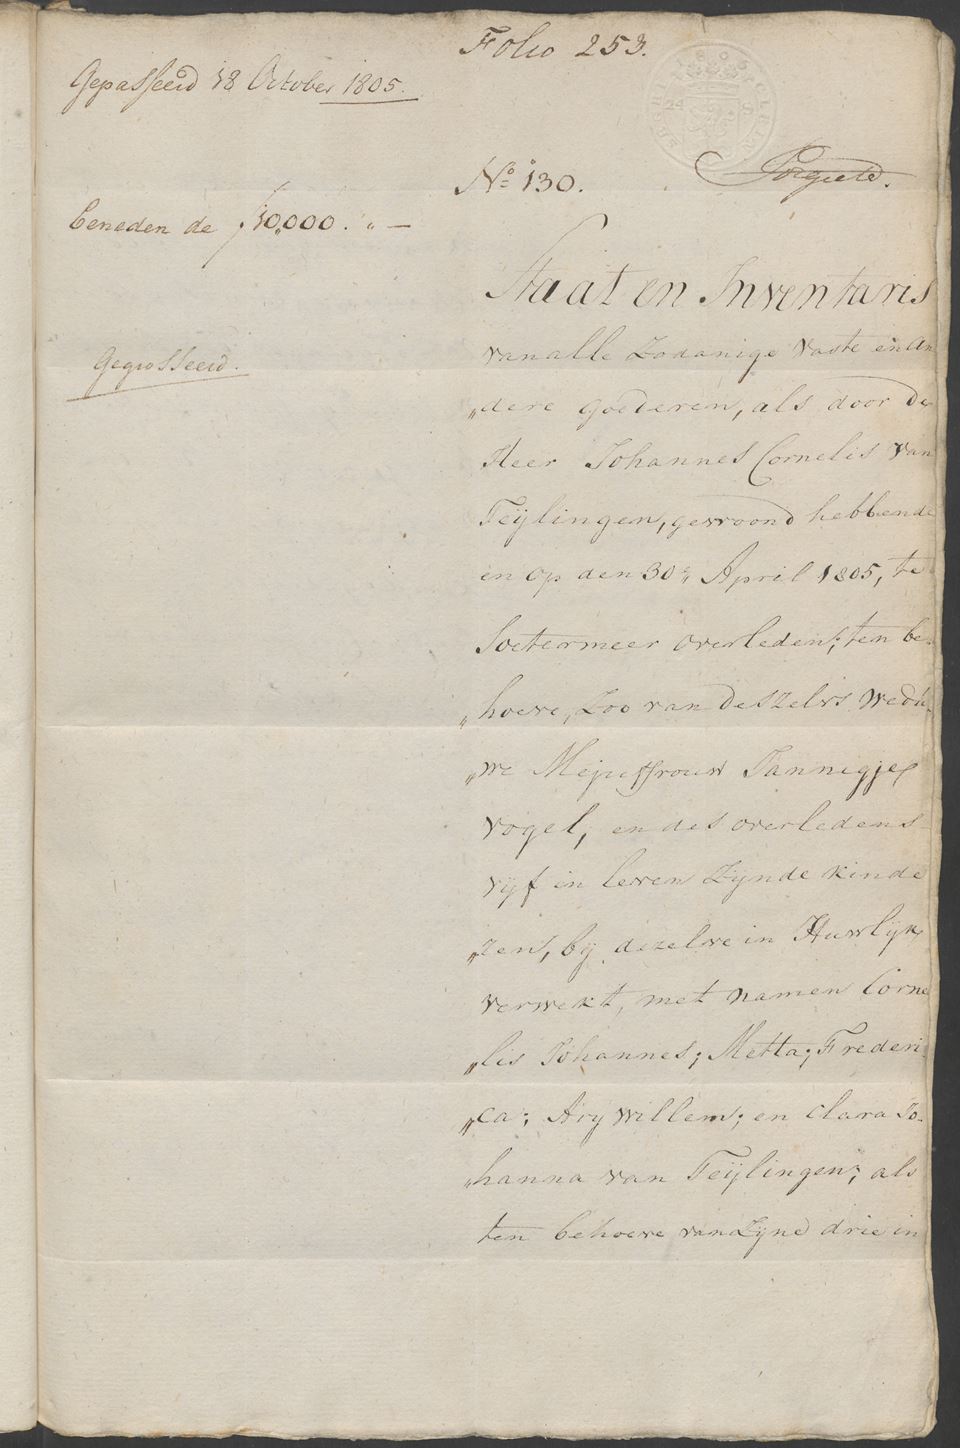 Folio 253.
Gepasseerd 18 October 1805.
No 130.
beneden de ƒ10,000. „ —
Staat en Inventaris
van alle Zodanige vaste en an
Gegrosseerd.
„dere goederen, als door de
Heer Johannes Cornelis van
Teijlingen, gewoond hebbende
en op den 30e April 1805, te
Soetermeer overleden; ten be-
„hoeve, zoo van deszelvs wedu
„we Mejuffrouw Jannegje
Vogel, en des overledens
vijf in leven Zijnde kinde
„ren, bij dezelve in Huwlijk
verwekt, met namen Corne
„lis Johannes; Metta; Frederi
„ca; Arij Willem; en Clara Jo-
„hanna van Teijlingen; als
ten behoeve van Zijne drie in